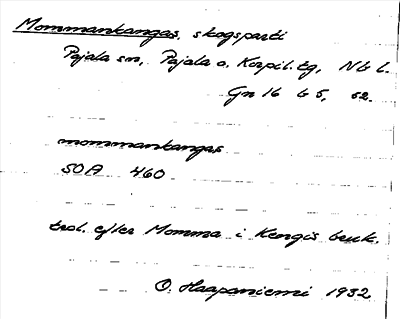 Mommankangas, skogsparti
Pajala sn, Pajala o. Korpil. tg, Nb l.
Gn 16 G 5, 52.
mommankangas
SOA 460
trol. efter Momma i Kengis bruk.
O. Haapaniemi 1932